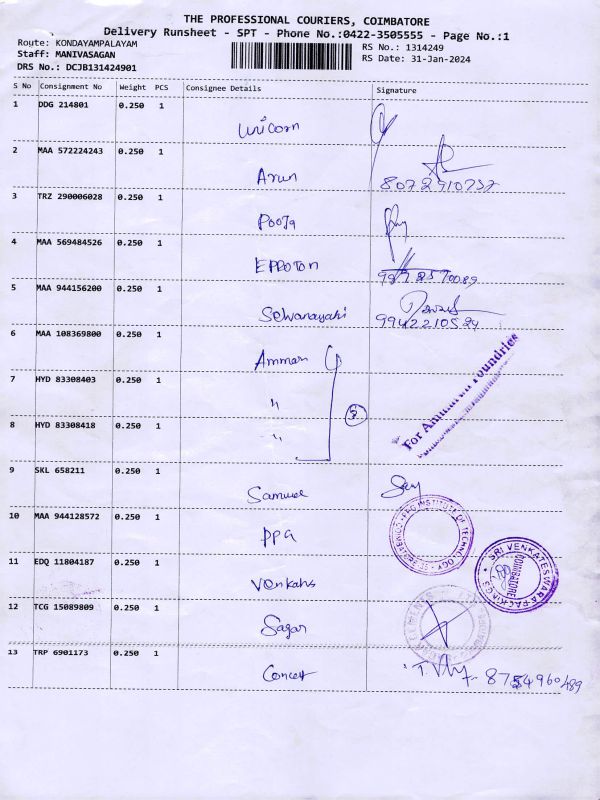 THE PROFESSIONAL COURIERS, COIMBATORE
Delivery Runsheet - SPT - Phone No.:0422-3505555 - Page No.:1
Route: KONDAYAMPALAYAM
Staff: MANIVASAGAN
DRS No.: DCJB131424901
RS No.: 1314249
RS Date: 31-Jan-2024
S No Consignment No Weight PCS Consignee Details Signature
1 DDG 214801 0.250 1
Unicorn
2 MAA 572224243 0.250 1
Arun 8072910757
3 TRZ 290006028 0.250 1
Pooja
4 MAA 569484526 0.250 1
EPROTON
5 MAA 944156200 0.250 1
Selvanayaki 9942210524
6 MAA 108369800 0.250 1
Amman
7 HYD 83308403 0.250 1
"
5
8 HYD 83308418 0.250 1
"
For Foundries
9 SKL 658211 0.250 1
Samuel
10 MAA 944128572 0.250 1
PPG INSTITUTE OF TECHNOLOGY
PPG
11 EDQ 11804187 0.250 1
SRI VENKATESWARA PACKING
COIMBATORE
Venkats
12 TCG 15089809 0.250 1
Sagar
13 TRP 6901173 0.250 1
Concept 8754960489